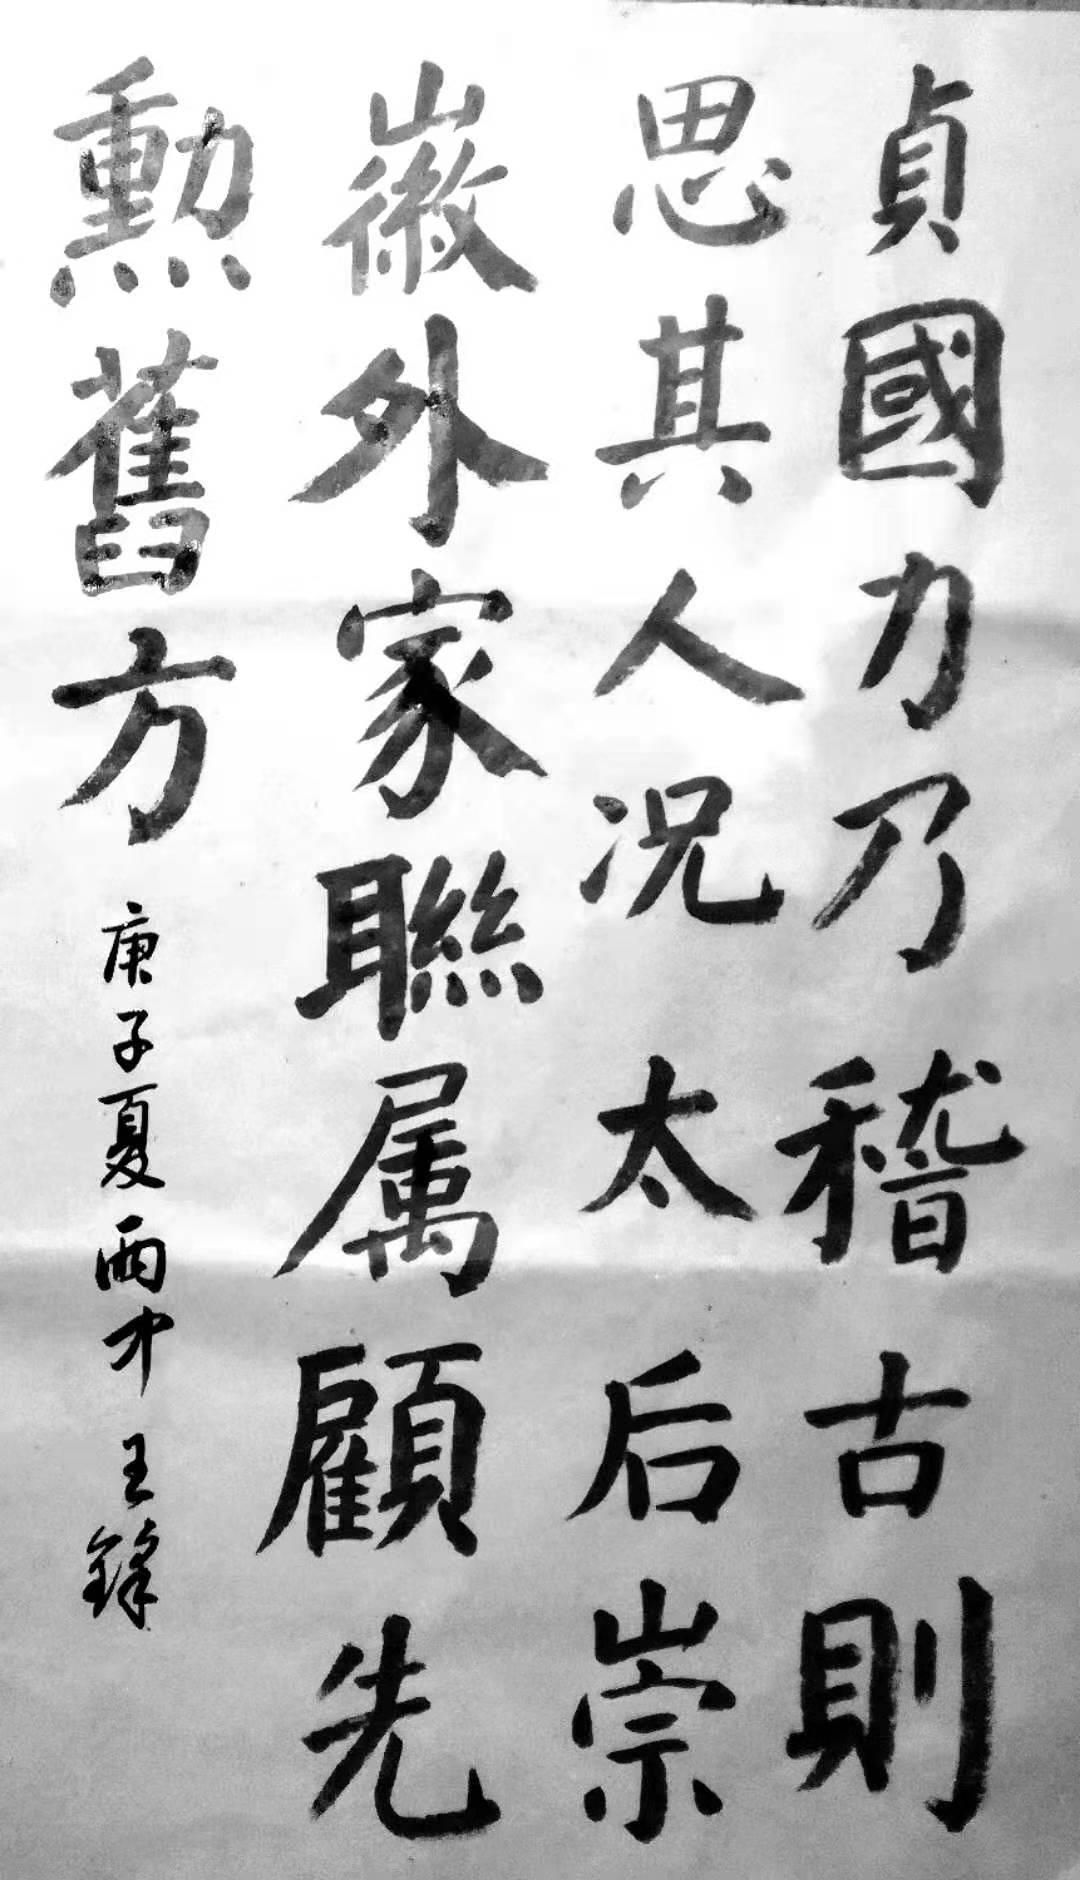 貞國力乃稽古則
思其人况太后崇
徽外家聯属顧先
勳舊方
庚子夏雨中王鋒